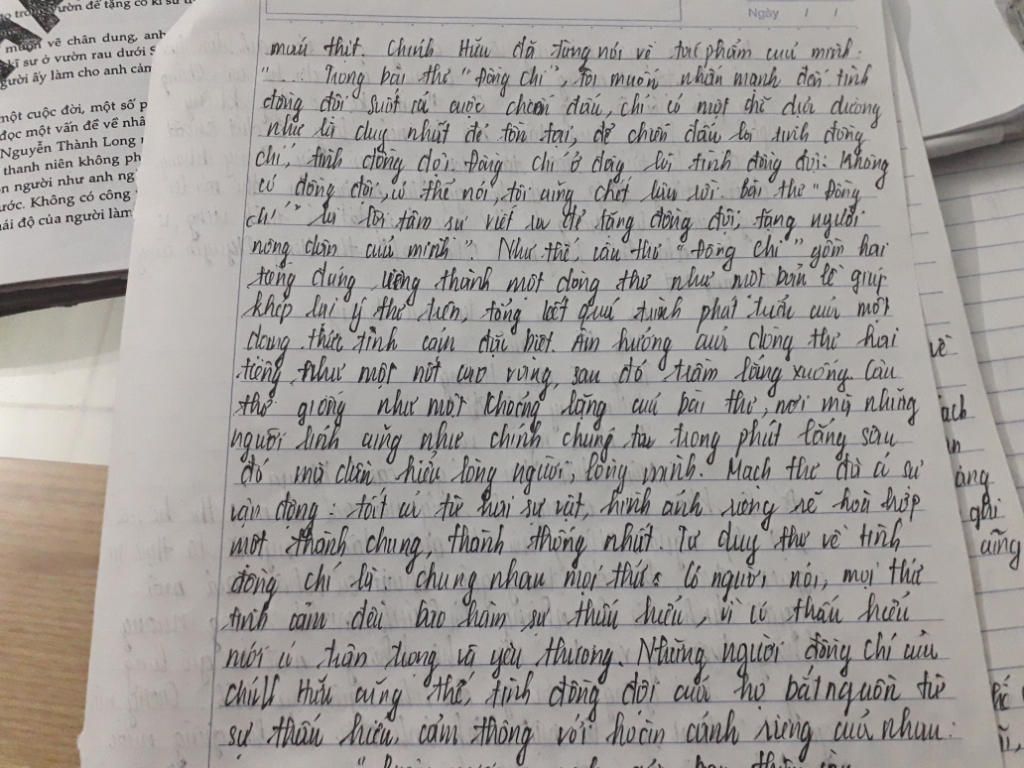 to trong vườn để tặng cô kĩ sư
muốn vẽ chân dung, anh
kĩ sư ở vườn rau dưới S
gười ấy làm cho anh cảm
một cuộc đời, một số p
đọc một vấn đề về nhâ
Nguyễn Thành Long
thanh niên không ph
n người như anh ng
ước. Không có công
ái độ của người làm
Ngày / /
máu thịt. Chính Hữu đã từng nói về tác phẩm của mình:
"... Trong bài thơ "Đồng chí", tôi muốn nhấn mạnh đến tình
đồng đội. Suốt cả cuộc chiến đấu, chỉ có một chỗ dựa dường
như là duy nhất để tồn tại, để chiến đấu là tình đồng
chí, tình đồng đội. Đồng chí ở đây là tình đồng đội: Không
có đồng đội, có thể nói, tôi cũng chết lâu rồi. bài thơ "Đồng
chí" là lời tâm sự viết ra để tặng đồng đội, tặng người
nông dân của mình". Như thế, câu thơ "Đồng chí" gồm hai
tiếng dựng riêng thành một dòng thơ như một bản lề giúp
khép lại ý thơ trên, tổng kết quá trình phát triển của một
dạng thức tình cảm đặc biệt. Âm hưởng của dòng thơ hai
tiếng như một nốt cao vang, sau đó trầm lắng xuống. Câu
thơ giống như một khoảng lặng của bài thơ, nơi mà những
người lính cũng như chính chúng ta trong phút lắng sâu
đó mà chân hiểu lòng người, lòng mình. Mạch thơ đã có sự
vận động: tất cả từ hai sự vật, hình ảnh riêng rẽ hoà hợp
một thành chung, thành thống nhất. Tư duy thơ về tình
đồng chí là chung nhau mọi thứ. Có người nói, mọi thứ
tình cảm đều bao hàm sự thấu hiểu, vì có thấu hiểu
mới có trân trọng và yêu thương. Những người đồng chí của
chính Hữu cũng thế, tình đồng đội của họ bắt nguồn từ
sự thấu hiểu, cảm thông với hoàn cảnh riêng của nhau:
về
ách
àng
gửi
cũng